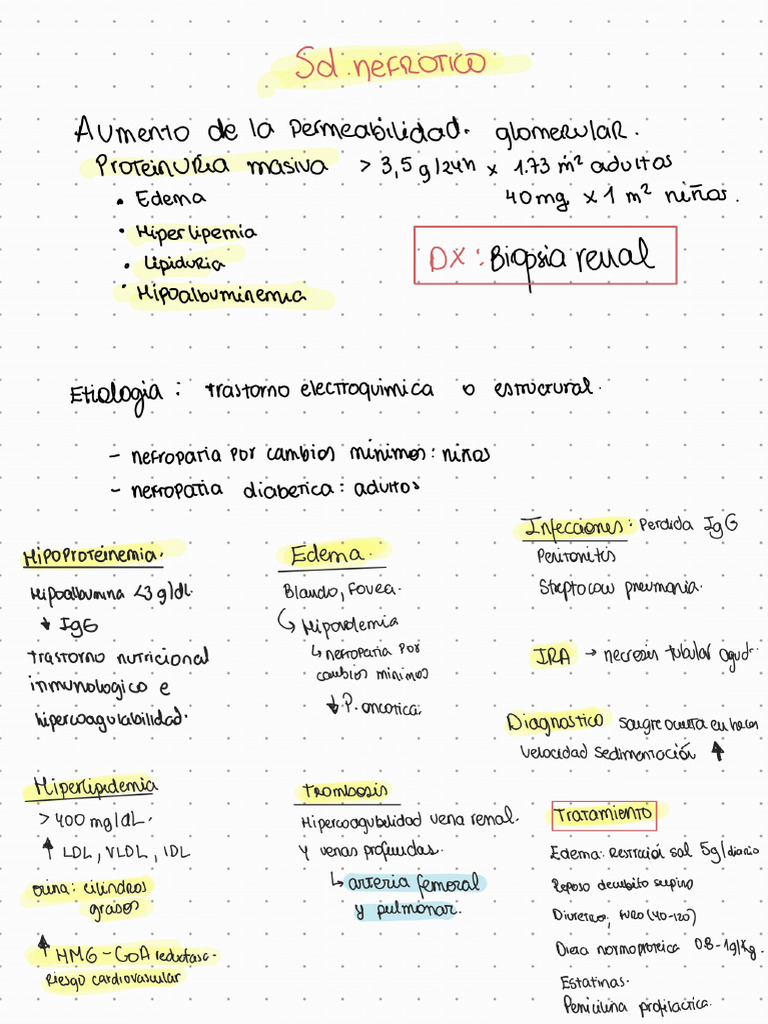 Sd. nefrotico
Aumento de la permeabilidad. glomerular.
Proteinuria masiva > 3,5 g/24h x 1.73 m² adultos
40mg x 1 m² niños.
• Edema
• Hiperlipemia
• Lipiduria
• Hipoalbuminemia
DX: Biopsia renal
Etiologia: trastorno electroquimica o estructural.
- nefroparia por cambios minimos: niños
- nefropatia diabetica: adultos
Hipoproteinemia.
Hipoalbumina <3 g/dL.
↓ IgG
trastorno nutricional
inmunologico e
hipercoagulabilidad.
Edema.
Blando, Fovea.
↳ Hipovolemia
↳ nefroparia por
cambios minimos
↓ P. oncotica.
Infecciones: Perdida IgG
Peritonitis
Streptocou pneumonia.
IRA → necrosis tubular agud.
Diagnostico sangre oculta en heces
velocidad sedimentación ↑
Hiperlipidemia
> 400 mg/dL.
↑ LDL, VLDL, IDL
orina: cilindros
grasos
↑ HMG-CoA reductasa.
Riesgo cardiovascular
Trombosis
Hipercoagubilidad vena renal.
y venas profundas.
↳ arteria femoral
y pulmonar.
Tratamiento
Edema: Restricioi sal 5g/diario
Reposo decubito supino
Diuretivo, furo (40-120)
Dieta normoproteica 0.8-1g/kg.
Estatinas.
Penicilina profilactica.